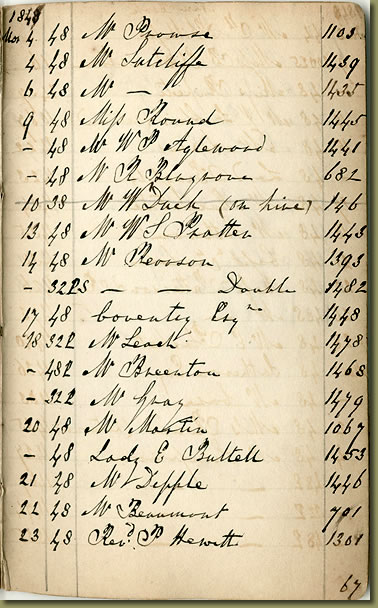 1848
Mar 4 48 Mr Prowse 1103
4 48 Mr Sutcliffe 1439
6 48 Mr — 1435
9 48 Miss Round 1445
– 48 Mr W P Aglewood 1441
– 48 Mr R Blagrove 682
10 38 Mr Wm Duck (on hire) 146
13 48 Mr W S Pratten 1443
14 48 Mr Rowson 1393
– 322S — — Double 1482
17 48 Coventry Esqre 1448
18 322 Mr Leach 1478
– 482 Mr Breenton 1468
– 322 Mr Gray 1479
20 48 Mr Martin 1067
– 48 Lady E Buttell 1453
21 48 Mr Dipple 1446
22 48 Mr Beaumont 701
23 48 Revd P Hewett 1301
67